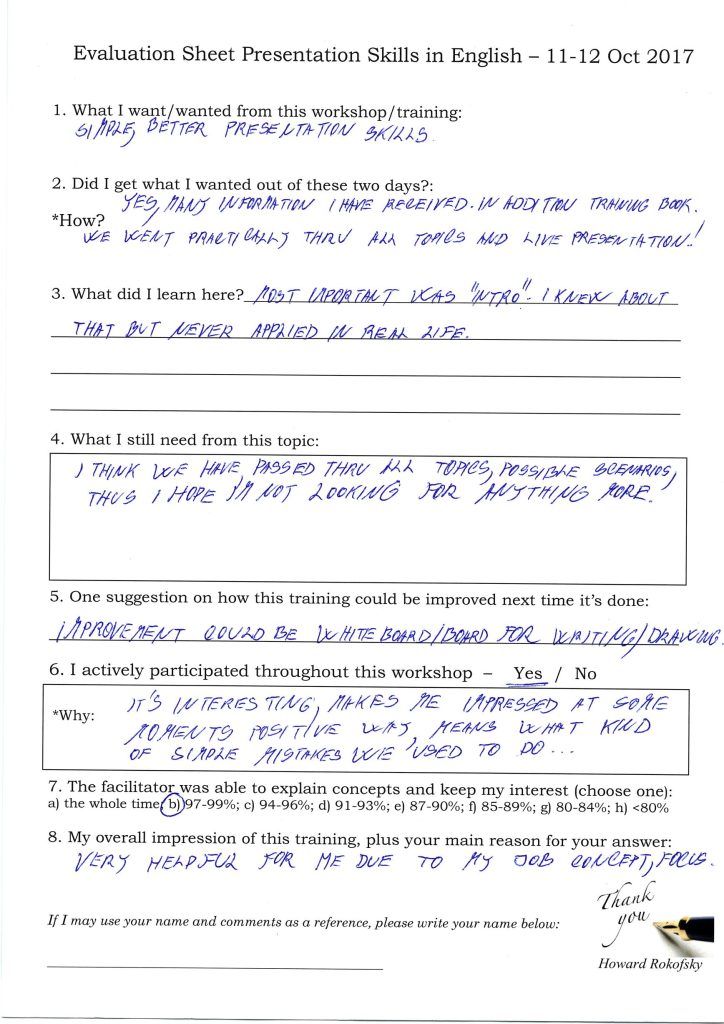 Evaluation Sheet Presentation Skills in English – 11-12 Oct 2017
1. What I want/wanted from this workshop/training:
SIMPLE, BETTER PRESENTATION SKILLS.
2. Did I get what I wanted out of these two days?:
YES, MANY INFORMATION I HAVE RECEIVED. IN ADDITION TRAINING BOOK.
*How?
WE WENT PRACTICALLY THRU ALL TOPICS AND LIVE PRESENTATION!
3. What did I learn here? MOST IMPORTANT WAS "INTRO". I KNEW ABOUT
THAT BUT NEVER APPLIED IN REAL LIFE.
4. What I still need from this topic:
I THINK WE HAVE PASSED THRU ALL TOPICS, POSSIBLE SCENARIOS,
THUS I HOPE I'M NOT LOOKING FOR ANYTHING MORE.
5. One suggestion on how this training could be improved next time it's done:
IMPROVEMENT COULD BE WHITEBOARD/BOARD FOR WRITING/DRAWING.
6. I actively participated throughout this workshop – Yes / No
IT'S INTERESTING, MAKES ME IMPRESSED AT SOME
*Why:
MOMENTS POSITIVE WAY, MEANS WHAT KIND
OF SIMPLE MISTAKES WE USED TO DO...
7. The facilitator was able to explain concepts and keep my interest (choose one):
a) the whole time; b) 97-99%; c) 94-96%; d) 91-93%; e) 87-90%; f) 85-89%; g) 80-84%; h) <80%
8. My overall impression of this training, plus your main reason for your answer:
VERY HELPFUL FOR ME DUE TO MY JOB CONCEPT, FOCUS.
Thank
you
If I may use your name and comments as a reference, please write your name below:
Howard Rokofsky